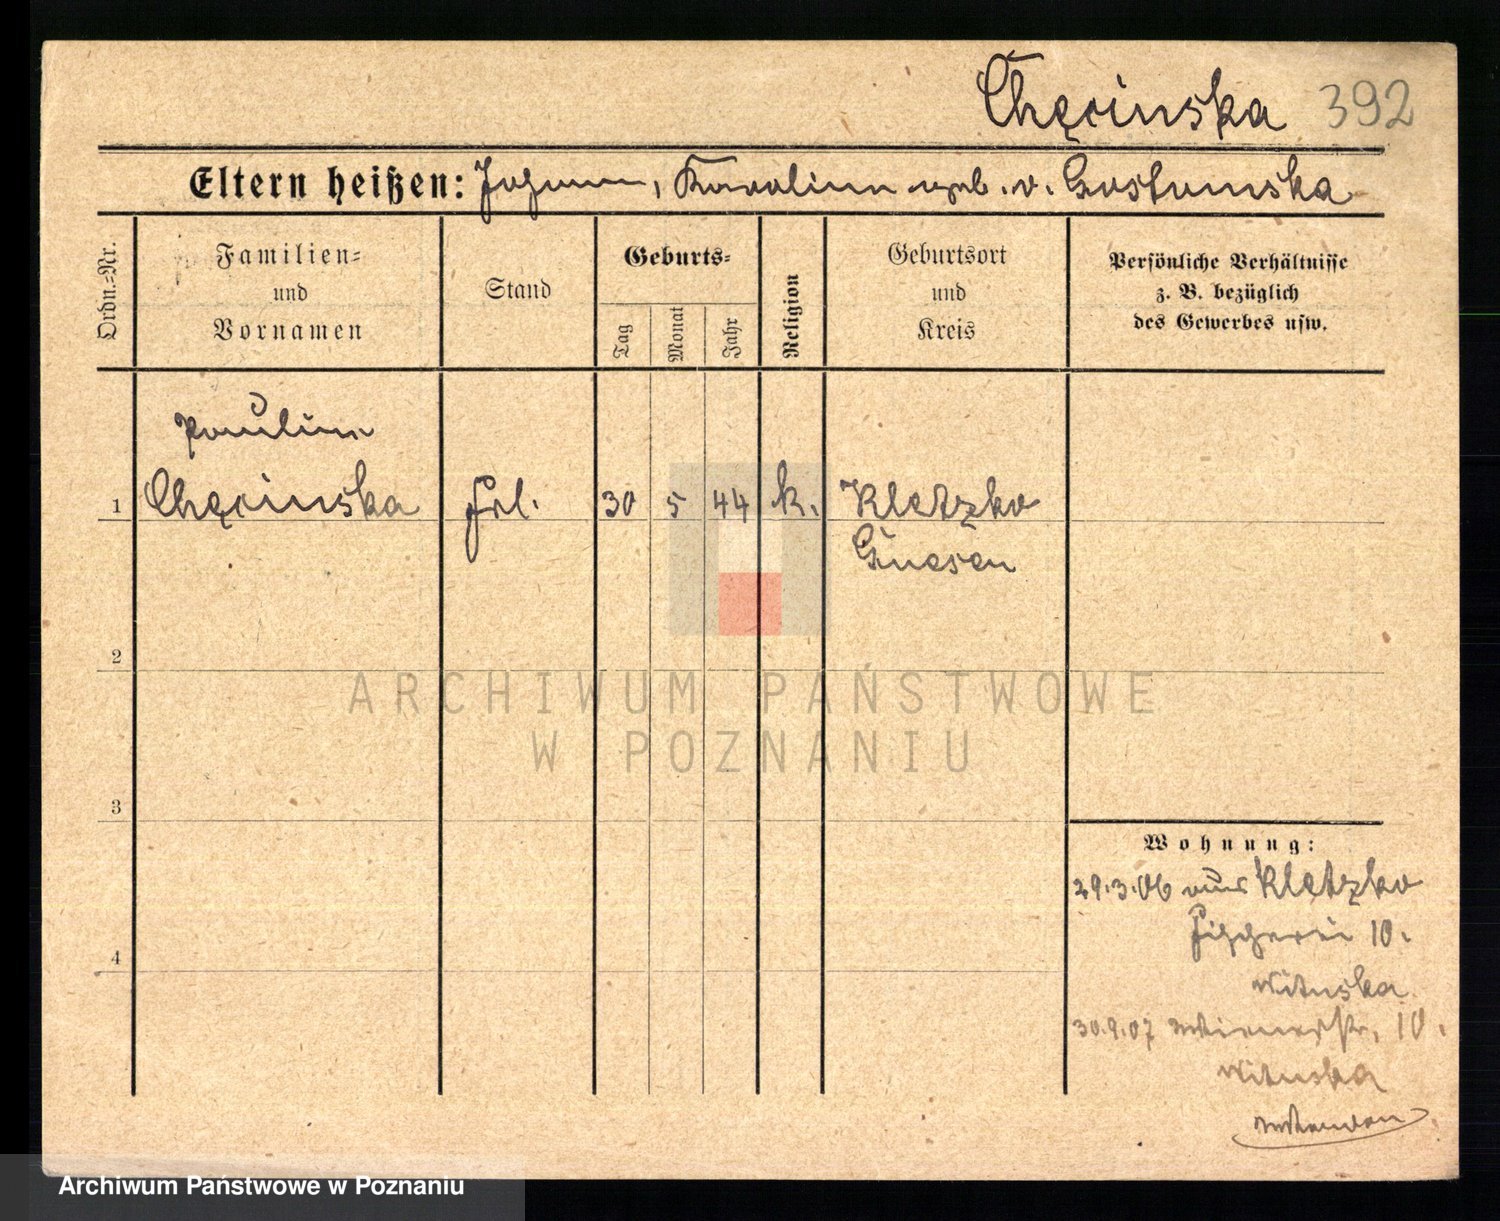 Chęcinska 392
Eltern heißen: Johann, Karolina geb. v. Gostomska
Ordn.-Nr.
Familien-
und
Vornamen
Stand
Geburts-
Tag
Monat
Jahr
Religion
Geburtsort
und
Kreis
Persönliche Verhältnisse
z. B. bezüglich
des Gewerbes usw.
Paulina
1 Chęcinska Frl. 30 5 44 k. Kletzko
Gnesen
2
ARCHIWUM PAŃSTWOWE
W POZNANIU
3
Wohnung:
29.3.06 aus Kletzko
Fischerei 10.
Wituska
4
30.9.07 10.
Wituska
Archiwum Państwowe w Poznaniu